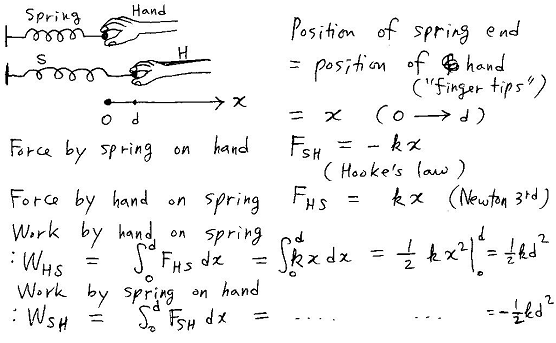 Spring Hand
S H
O d x
Position of spring end
= position of hand
("finger tips")
= x (O → d)
Force by spring on hand F_SH = - kx
(Hooke's law)
Force by hand on spring F_HS = kx (Newton 3rd)
Work by hand on spring
: W_HS = ∫₀^d F_HS dx = ∫₀^d kx dx = 1/2 kx² |₀^d = 1/2 kd²
Work by spring on hand
: W_SH = ∫₀^d F_SH dx = ..... ... = -1/2 kd²